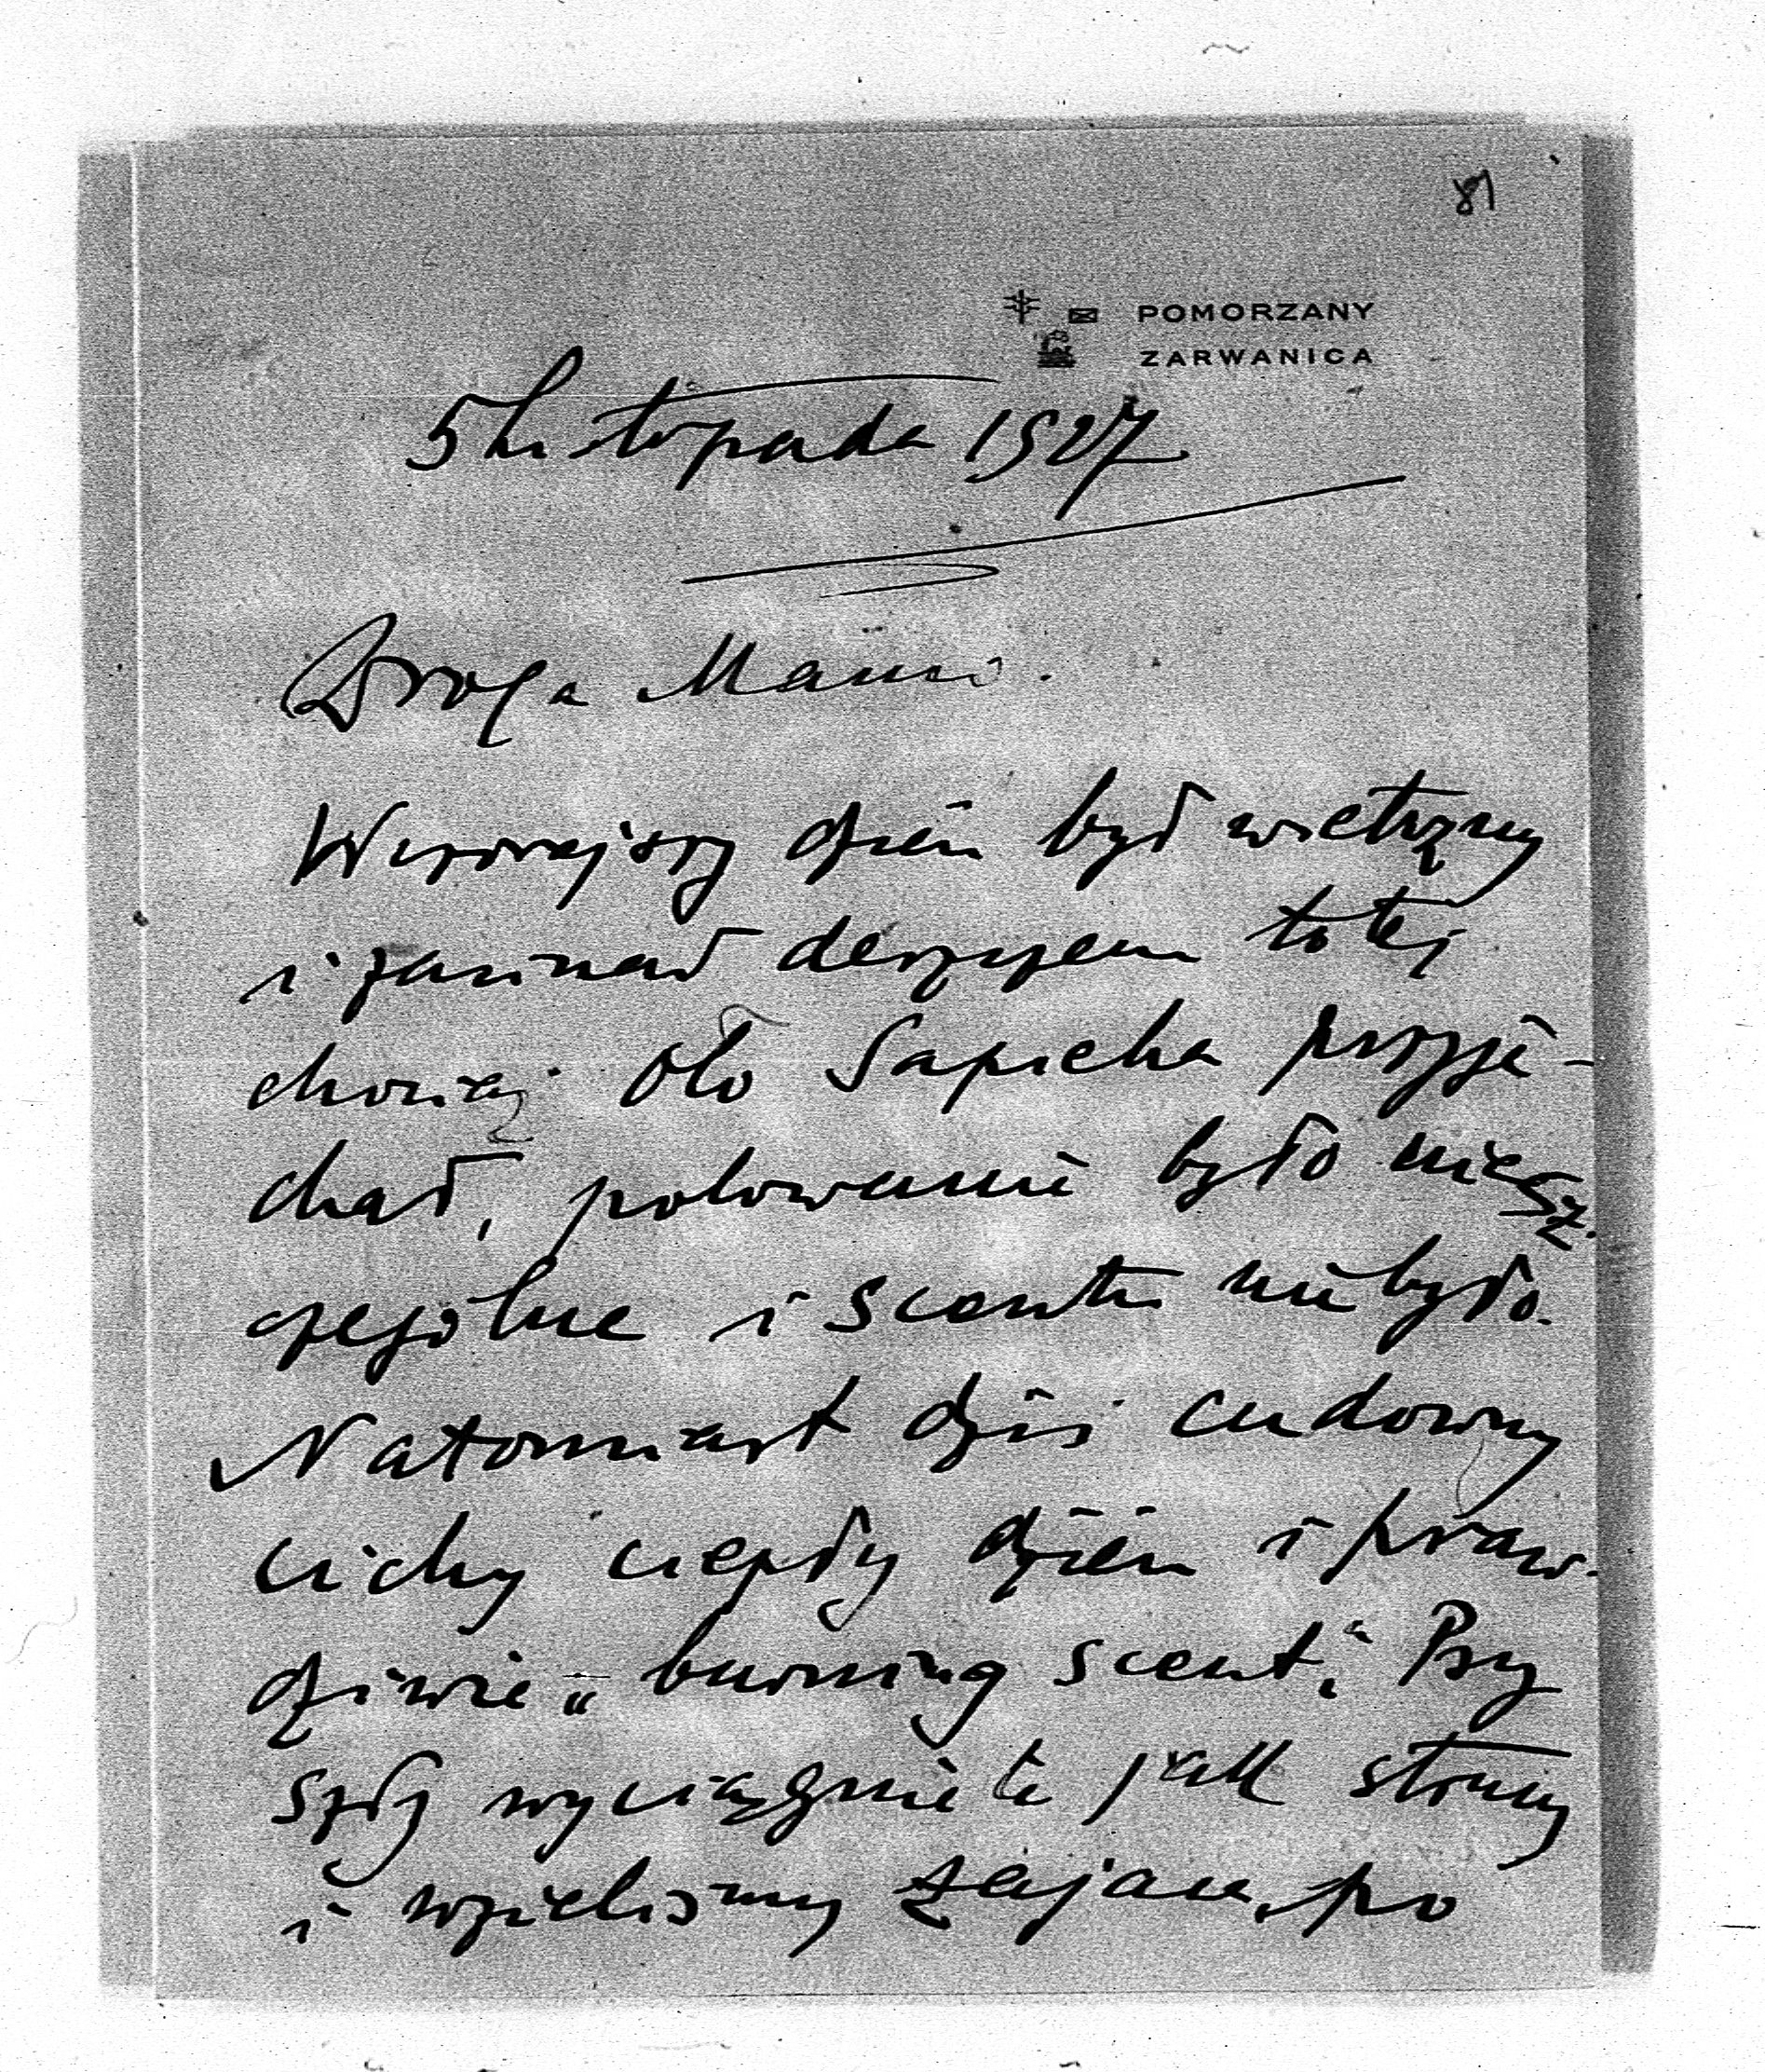 81
POMORZANY
ZARWANICA
5 Listopada 1927
Droga Mamo.
Wczorajszy dzień był wietrzny
i zacinał deszczem to też
chociaż Oto Sapieha przyje-
chał, polowanie było niesz.
czególne i scentu nie było.
Natomiast dziś cudowny
cichy ciepły dzień i praw-
dziwie „burning scent". Psy
szły wyciągnięte jak struny
i wzieliśmy zająca po